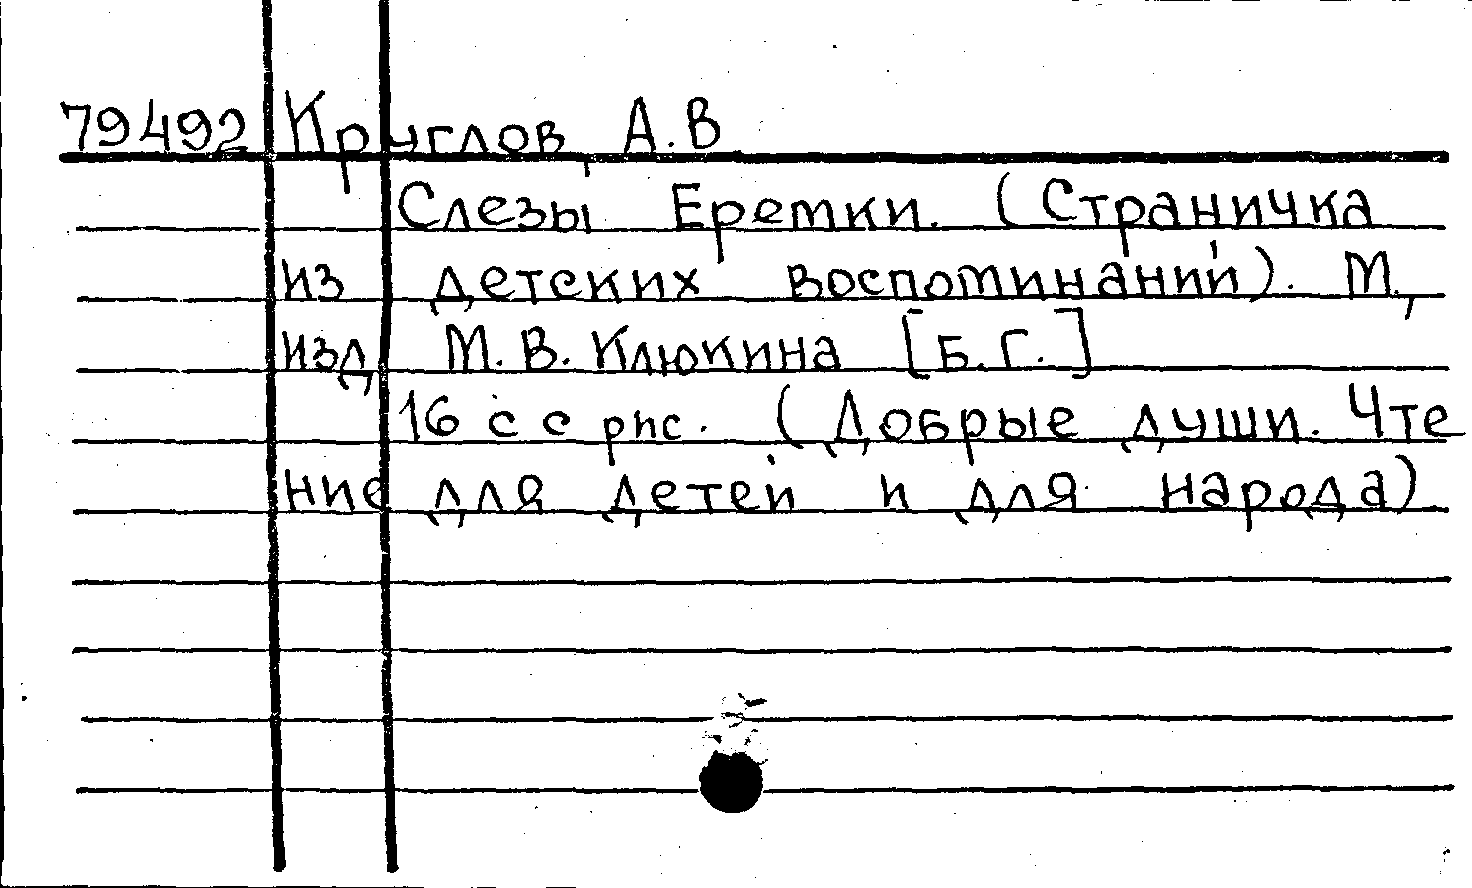 79492 Круглов, А.В
Слезы Еремки. (Страничка
из детских воспоминаний). М.,
изд М.В. Клюкина [Б.Г.]
16 с с рис. (Добрые души. Чте
ние для детей и для народа)